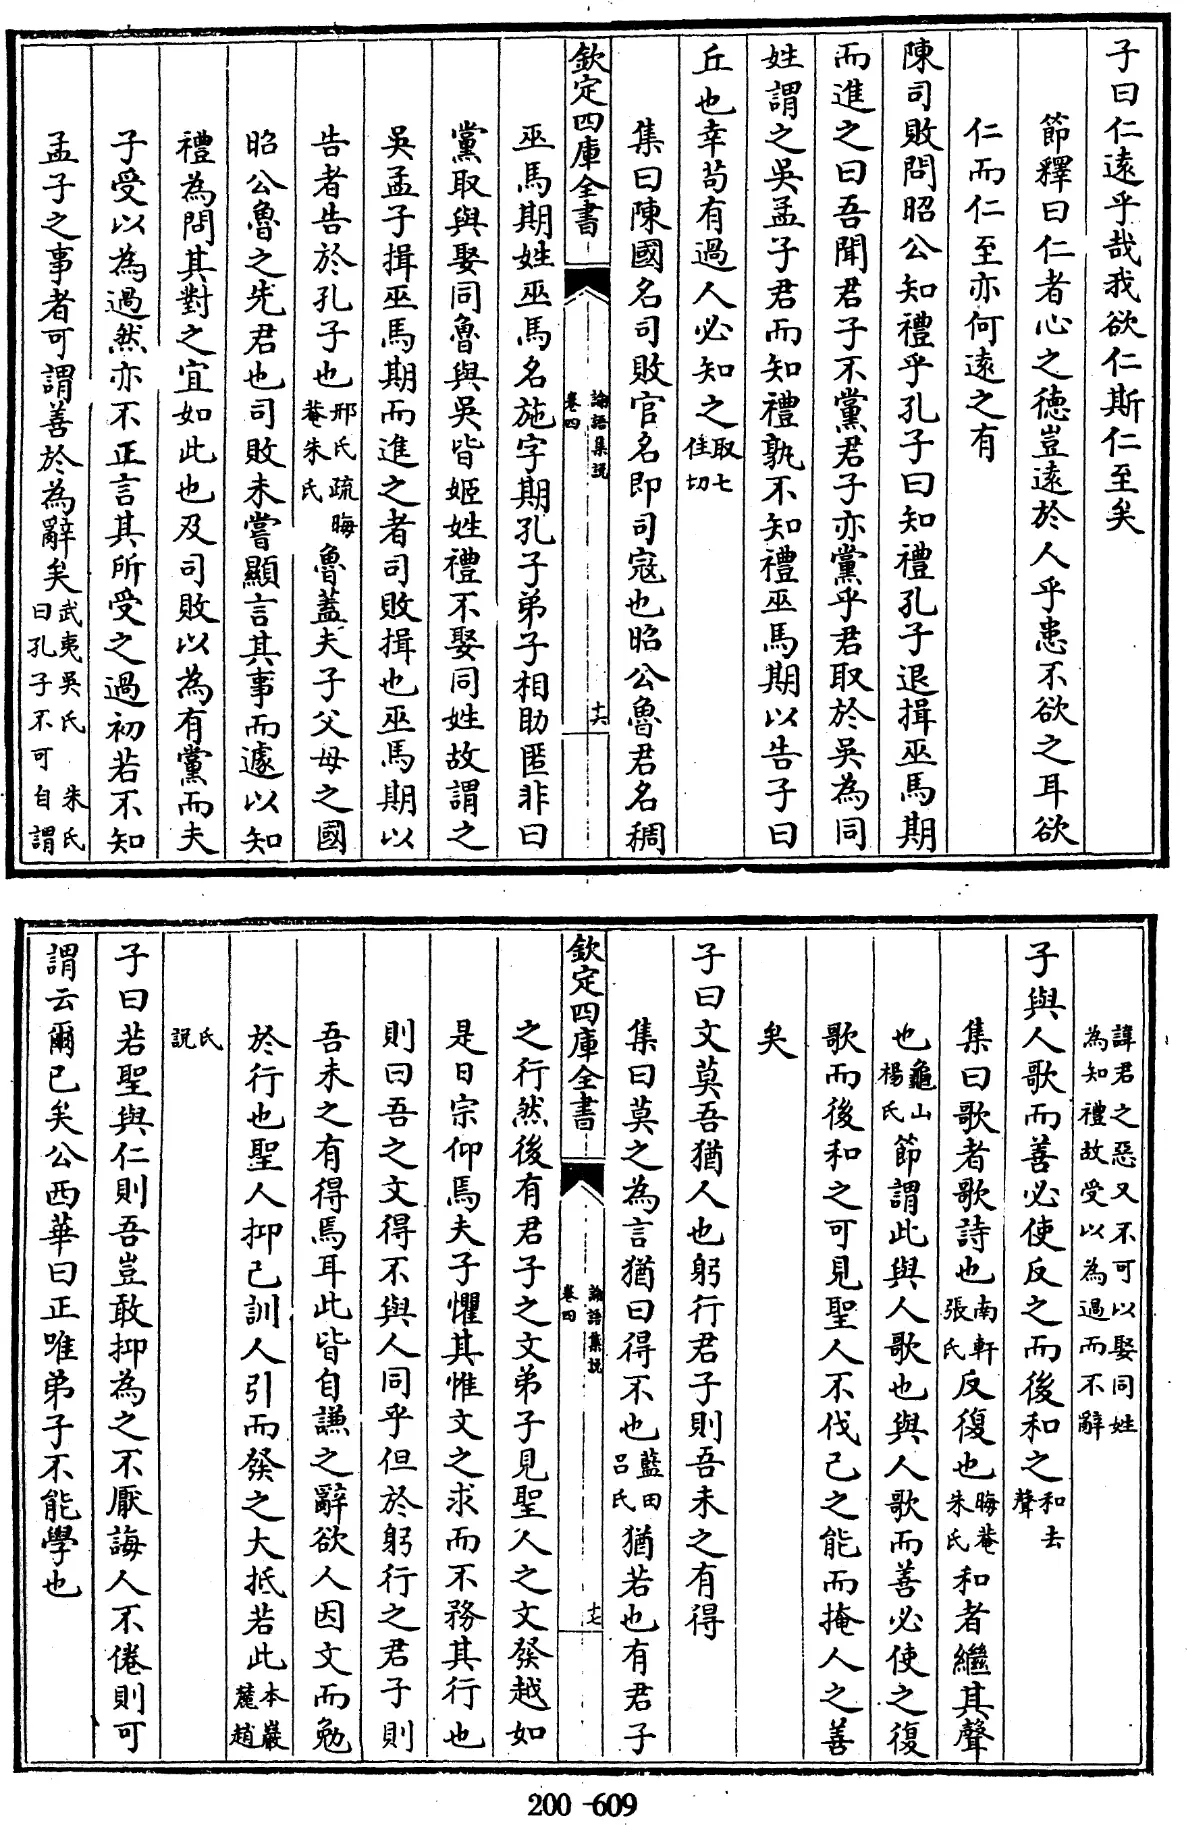 子曰仁遠乎哉我欲仁斯仁至矣
節釋曰仁者心之德豈遠於人乎患不欲之耳欲
仁而仁至亦何遠之有
陳司敗問昭公知禮乎孔子曰知禮孔子退揖巫馬期
而進之曰吾聞君子不黨君子亦黨乎君取於吳為同
姓謂之吳孟子君而知禮孰不知禮巫馬期以告子曰
丘也幸苟有過人必知之取七住切
集曰陳國名司敗官名即司寇也昭公魯君名稠
欽定四庫全書 論語集説卷四 十六
巫馬期姓巫馬名施字期孔子弟子相助匿非曰
黨取與娶同魯與吳皆姬姓禮不娶同姓故謂之
吳孟子揖巫馬期而進之者司敗揖也巫馬期以
告者告於孔子也邢氏疏晦菴朱氏魯蓋夫子父母之國
昭公魯之先君也司敗未嘗顯言其事而遽以知
禮為問其對之宜如此也及司敗以為有黨而夫
子受以為過然亦不正言其所受之過初若不知
孟子之事者可謂善於為辭矣武夷吳氏 朱氏曰孔子不可自謂
諱君之惡又不可以娶同姓為知禮故受以為過而不辭
子與人歌而善必使反之而後和之和去聲
集曰歌者歌詩也南軒張氏反復也晦菴朱氏和者繼其聲
也龜山楊氏節謂此與人歌也與人歌而善必使之復
歌而後和之可見聖人不伐己之能而掩人之善
矣
子曰文莫吾猶人也躬行君子則吾未之有得
集曰莫之為言猶曰得不也藍田呂氏猶若也有君子
欽定四庫全書 論語集説卷四 十七
之行然後有君子之文弟子見聖人之文發越如
是日宗仰焉夫子懼其惟文之求而不務其行也
則曰吾之文得不與人同乎但於躬行之君子則
吾未之有得焉耳此皆自謙之辭欲人因文而勉
於行也聖人抑己訓人引而發之大抵若此本巖麓趙
氏説
子曰若聖與仁則吾豈敢抑為之不厭誨人不倦則可
謂云爾已矣公西華曰正唯弟子不能學也
200-609